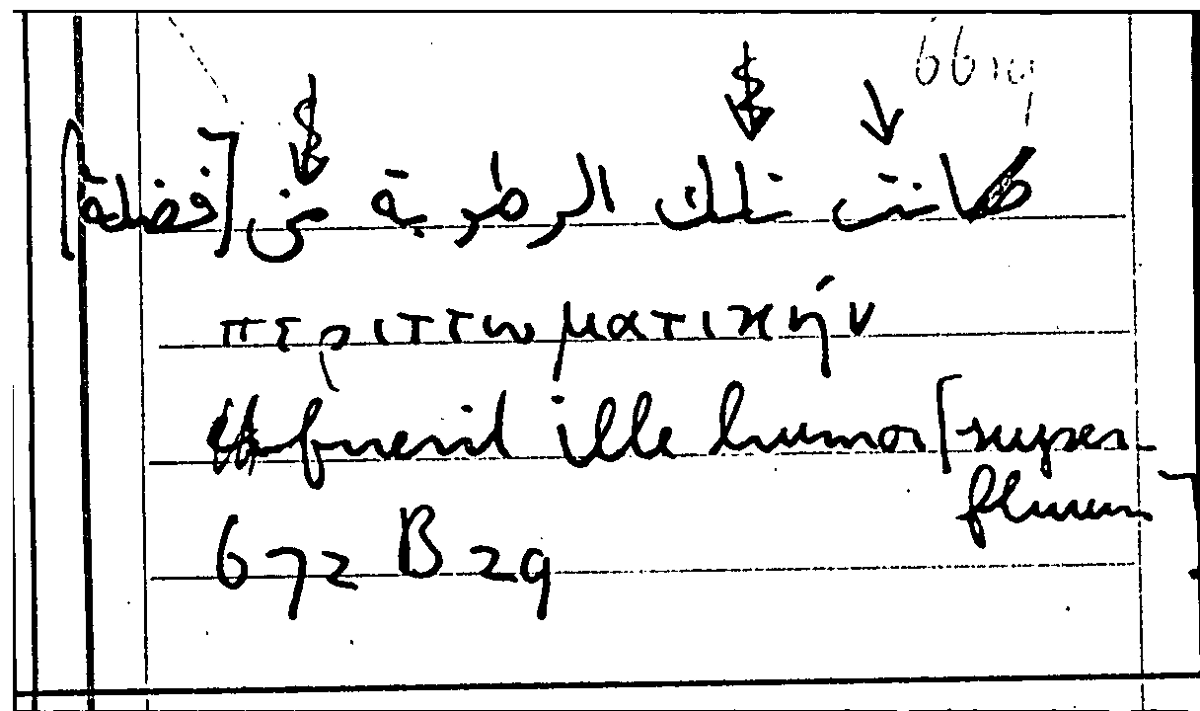 كانت تلك الرطوبة من [فضلة]
περιττωματικήν
fuerit ille humor [super-
fluum]
672 B 29